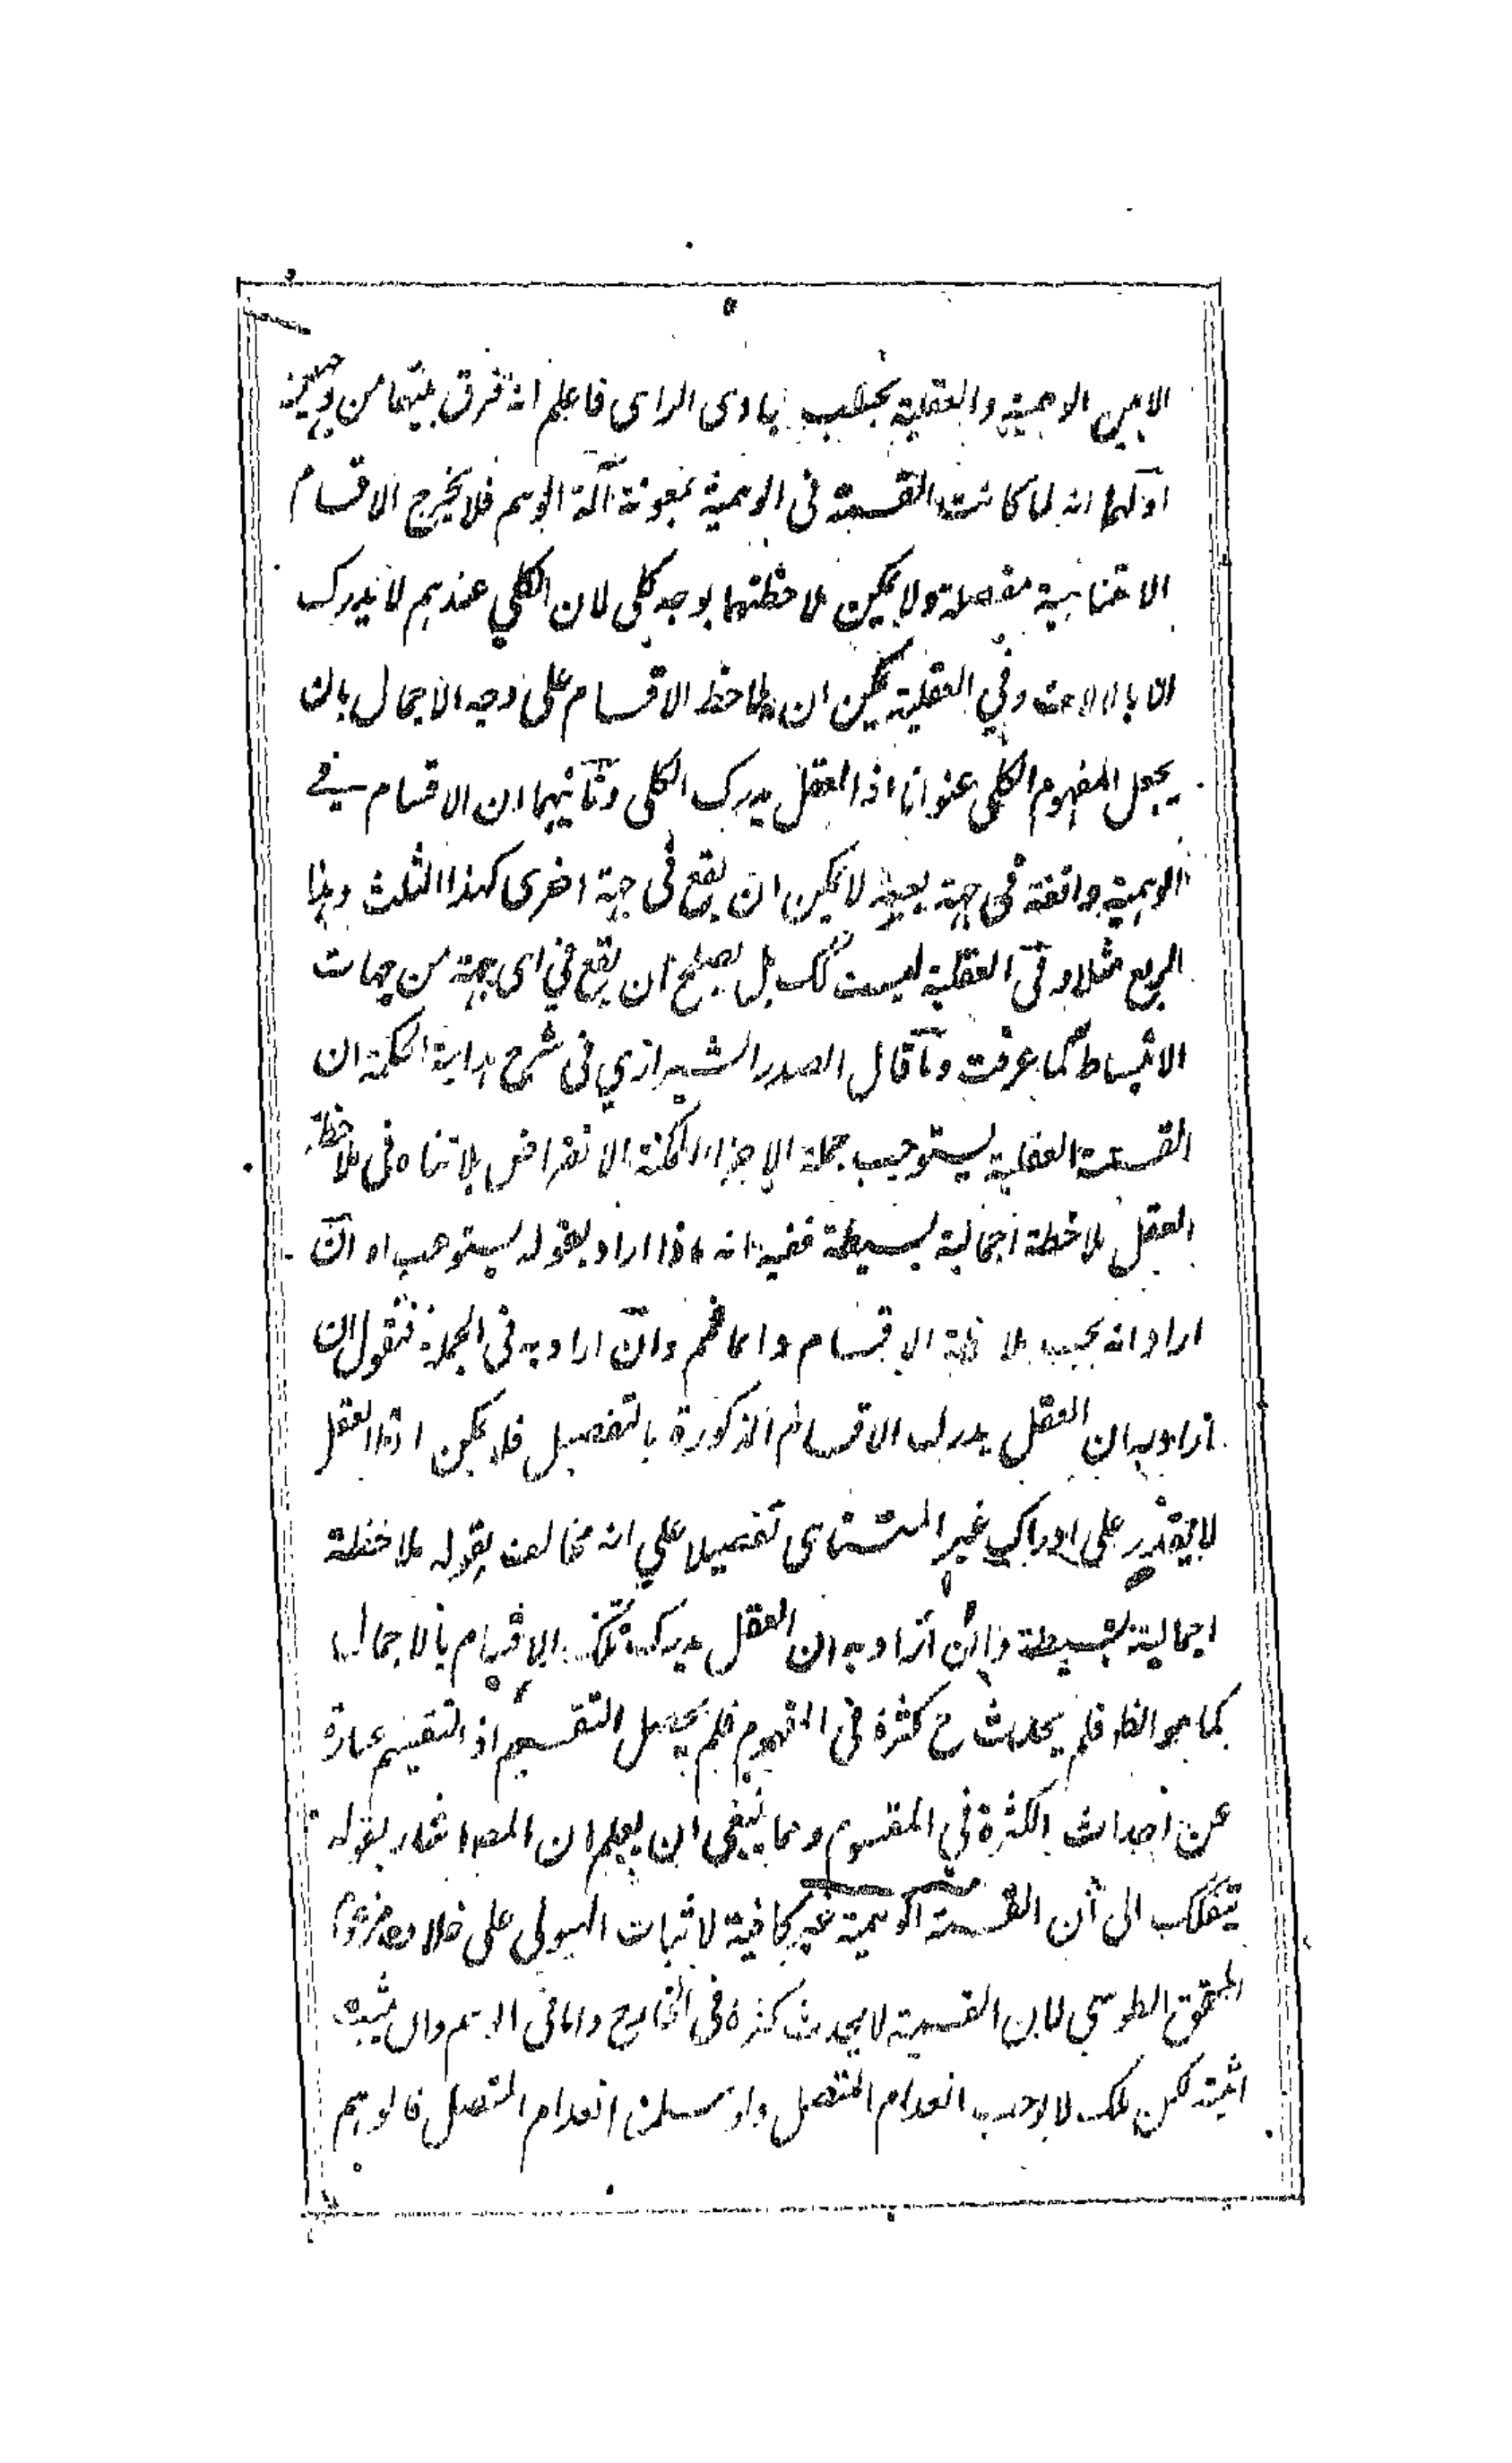 الا بين الوهمية والعقلية بحسب بادى الراى فاعلم انه فرق بينهما من وجهين
اولهما انه لما كانت القسمة فى الوهمية بمعونة آلة الوهم فلا يخرج الاقسام
الا متناهية مفصلة ولا يمكن ملاحظتها بوجه كلى لان الكلي عندهم لا يدرك
الا بالالات وفي العقلية يمكن ان يلاحظ الاقسام على وجه الاجمال بان
يجعل المفهوم الكلى عنوانا اذ العقل يدرك الكلى وثانيهما ان الاقسام في
الوهمية واقعة فى جهة بعينها لا يمكن ان يقع فى جهة اخرى كهذا الثلث وهذا
الربع مثلا وفى العقلية ليست كك بل يصلح ان يقع في اى جهة من جهات
الانبساط كما عرفت وما قال الصدر الشيرازي فى شرح هداية الحكمة ان
القسمة العقلية يستوجب جملة الاجزاء الممكنة الانفراض بلا تناه فى ملاحظة
العقل ملاحظة اجمالية بسيطة ففيه انه ماذا اراد بقوله يستوعب او ان
اراد انه يجب ملاحظة الاقسام دائما فمم وان اراد به فى الجملة فنقول ان
اراد به ان العقل يدرك الاقسام المذكورة بالتفصيل فلا يمكن اذ العقل
لا يقدر على ادراك غير المتناهى تفصيلا علي انه مخالف لقوله ملاحظة
اجمالية بسيطة وان اراد به ان العقل يدرك تلك الاقسام بالاجمال
كما هو الظ فلم يحدث ح كثرة فى المفهوم فلم يحصل التقسيم اذ التقسيم عبارة
عن احداث الكثرة في المقسوم ومما ينبغى ان يعلم ان المصـ اشار بقوله
تنفكك الى أن القسمة الوهمية غير كافية لاثبات الهيولى على خلاف
المحقق الطوسى لان القسمة لا يحدث كثرة فى الخارج واما فى الوهم وان يثبت
اثنينية لكن تلك لا يوجب انعدام المتصل ولو سلمنا انعدام المتصل فالوهم